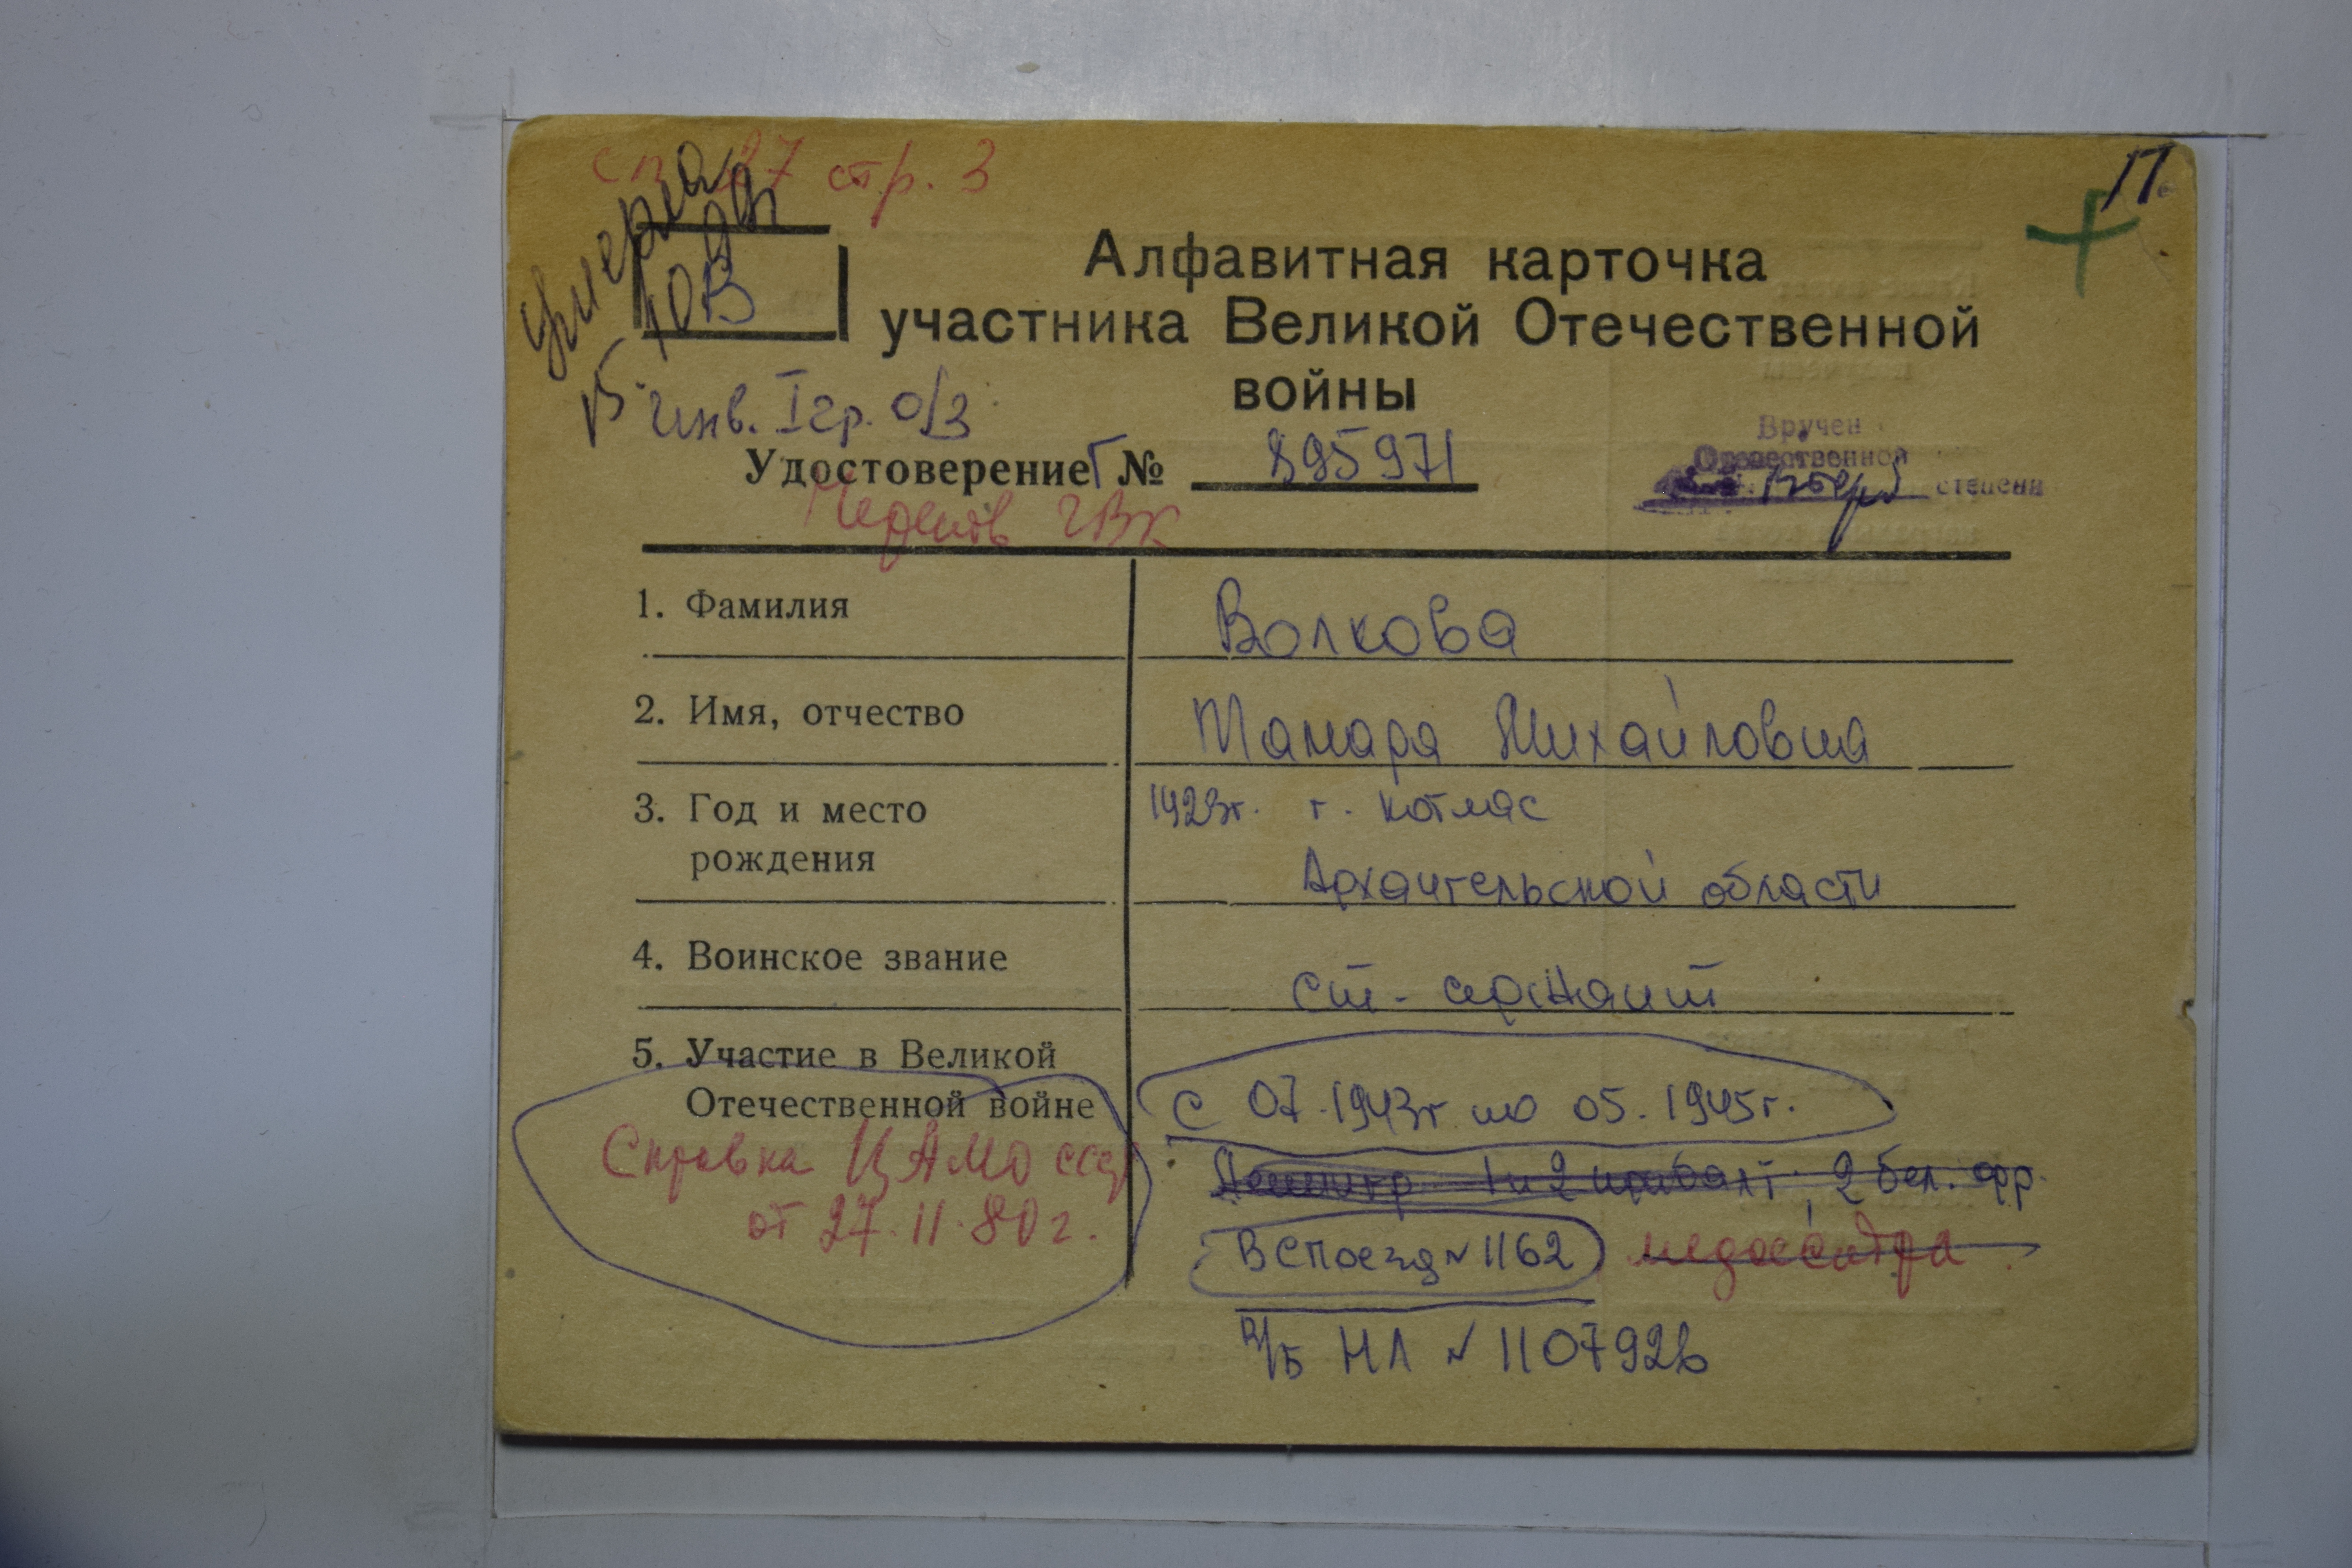 стр. 3
П.
умерла
ЮВ
Алфавитная карточка
участника Великой Отечественной
войны
инв. I гр. о/з
Вручен
Отечественной
степени
Удостоверение Г № 895971
ГВК
1. Фамилия Волкова
2. Имя, отчество Тамара Михайловна
3. Год и место 1923г. г. Котлас
рождения Архангельской области
4. Воинское звание ст. сержант
5. Участие в Великой
Отечественной войне с 07.1943г по 05.1945г.
Справка ЦАМО ссср
от 27.11.80г.
Ленингр. 1 и 2 прибалт, 2 бел. фр.
ВСпоезд № 1162 медсестра
в/б НЛ № 1107926